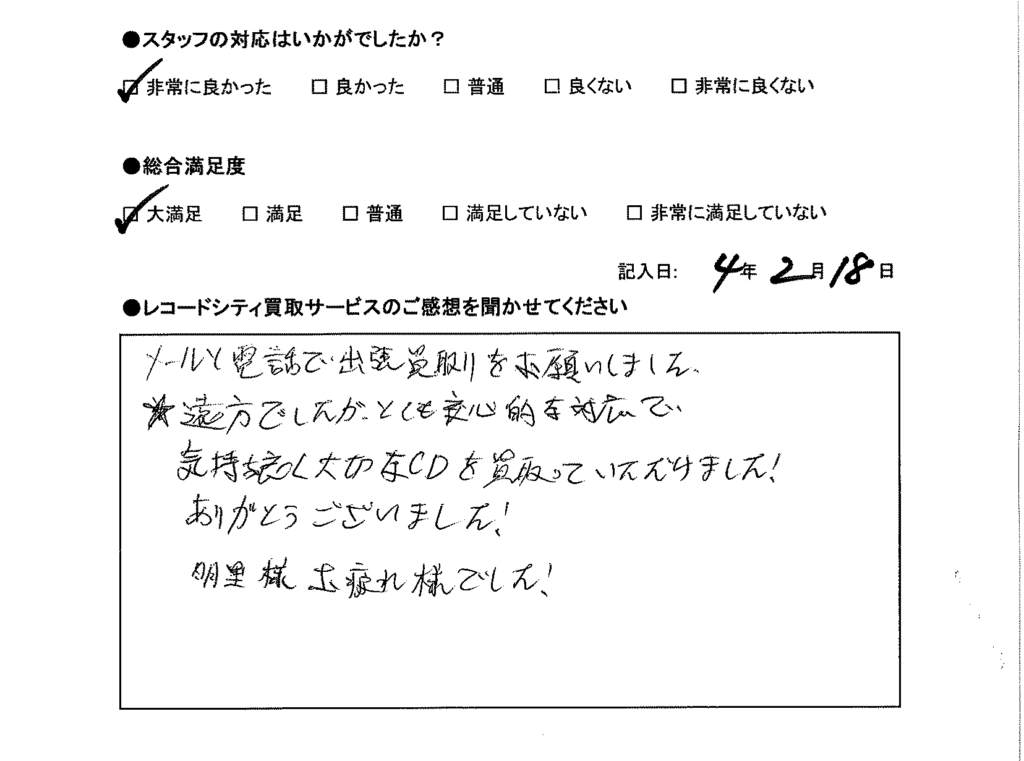 ●スタッフの対応はいかがでしたか?
☑ 非常に良かった □ 良かった □ 普通 □ 良くない □ 非常に良くない
●総合満足度
☑ 大満足 □ 満足 □ 普通 □ 満足していない □ 非常に満足していない
記入日: 4年 2月18日
●レコードシティ買取サービスのご感想を聞かせてください
メールと電話で出張買取りをお願いしました。
★遠方でしたが、とても良心的な対応で、
気持ち良く大切なCDを買取っていただけました!
ありがとうございました!
明里様 お疲れ様でした!